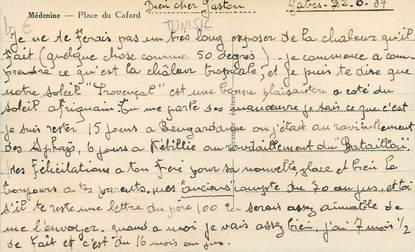 Médenine — Place du Cafard
TUNISIE
Bien cher Gaston
Gabès - 22.6.37
Je ne te ferais pas un très long exposer de la chaleur qu'il
fait (quelque chose comme 50 degrés) - je commence a com-
prendre ce qu'est la châleur tropicale, et je puis te dire que
notre soleil "Provençal" est une bonne plaisanterie a coté du
soleil afriquain. Tu me parle des manœuvre je sais ce que c'est
je suis rester 15 jours a Bengardane ou j'était au ravitaillement
des Spahis, 6 jours a Kébillie au ravitaillement du Bataillon.
mes félicitations a ton frère pour sa nouvelle place et bien le
toujours a tes parents, mes anciens compte du 70 au jus, et toi
s'il te reste une lettre du père 100 tu serais assez aimable de
me l'envoyer. quand a moi je vais assez bien, j'ai 7 mois ½
de fait et c'est du 16 mois au jus.